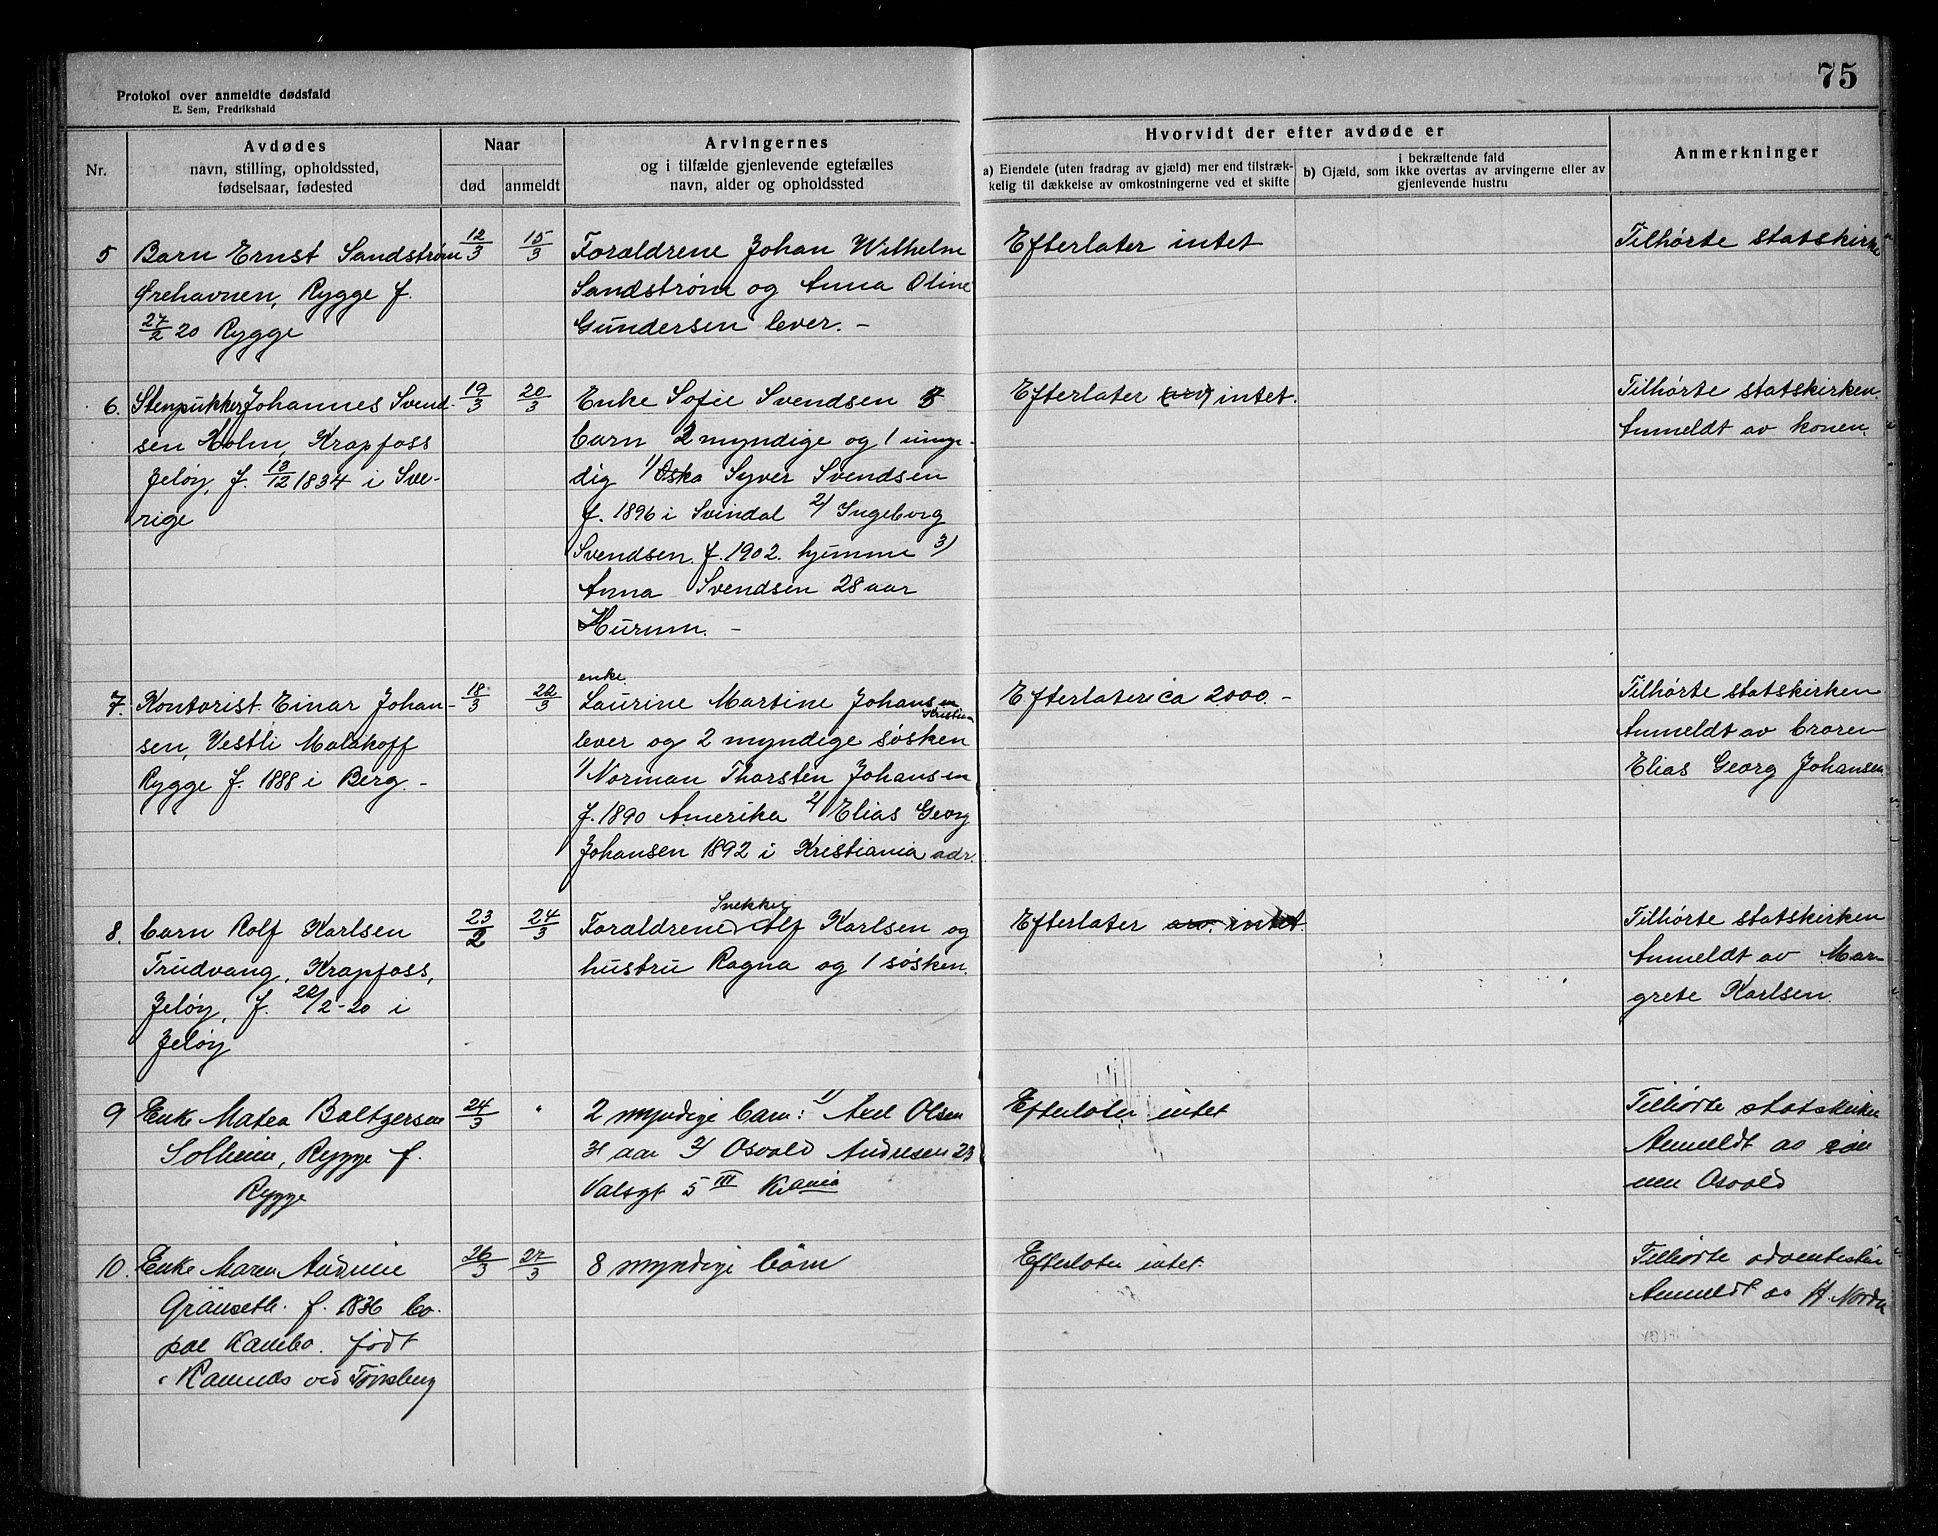 75
Protokol over anmeldte dødsfald
E. Sem, Fredrikshald
Nr.
Avdødes
navn, stilling, opholdssted,
fødselsaar, fødested
Naar
død
anmeldt
Arvingernes
og i tilfælde gjenlevende egtefælles
navn, alder og opholdssted
Hvorvidt der efter avdøde er
a) Eiendele (uten fradrag av gjæld) mer end tilstræk-
kelig til dækkelse av omkostningerne ved et skifte
i bekræftende fald
b) Gjæld, som ikke overtas av arvingerne eller av
gjenlevende hustru
Anmerkninger
5
Barn Ernst Sandstrøm
Ørehavnen, Rygge f.
27/2 20 Rygge
12/3
15/3
Forældrene Johan Wilhelm
Sandstrøm og Anna Oline
Gundersen lever. -
Efterlater intet
Tilhørte statskirke
6.
Stenpukker Johannes Svend-
sen Holm, Krapfoss
Jeløy, f. 13/12 1834 i Sve-
rige
19/3
20/3
Enke Sofie Svendsen 3
barn 2 myndige og 1 umyn-
dig 1/ Syver Svendsen
f. 1896 i Svindal 2/ Ingeborg
Svendsen f. 1902. hjemme 3/
Anna Svendsen 28 aar
Hurum. -
Efterlater (arv) intet.
Tilhørte statskirken.
Anmeldt av konen.
7.
Kontorist Einar Johan-
sen, Vestli Malakoff
Rygge f. 1888 i Berg. -
18/3
22/3
enke
Laurine Martine Johansen
lever og 2 myndige søsken
1/ Norman Thorsten Johansen
f. 1890 Amerika 2/ Elias Georg
Johansen 1892 i Kristiania adr.
Efterlater ca 2000. -
Tilhørte statskirken
Anmeldt av broren
Elias Georg Johansen
8.
barn Rolf Karlsen
Trudvang, Krapfoss,
Jeløy, f. 22/2-20 i
Jeløy
23/2
24/3
Snekker
Forældrene Alf Karlsen og
hustru Ragna og 1 søsken.
Efterlater arv. intet
Tilhørte statskirken
Anmeldt av Mar-
grete Karlsen.
9
Enke Matea Baltzersen
Solheim, Rygge f.
Rygge
24/3
"
2 myndige barn: 1/ Axel Olsen
31 aar 2/ Osvald Andresen 23
Valsgt 5 III Krania
Efterlater intet
Tilhørte statskirken
Anmeldt av søn
nen Osvald
10.
Enke Maren Andrine
Gränseth. f. 1836 bo-
pæl Kambo. født
i Ramnæs ved Tønsberg
26/3
27/3
8 myndige børn
Efterlater intet
Tilhørte adventisten
Anmeldt av H. Nordli